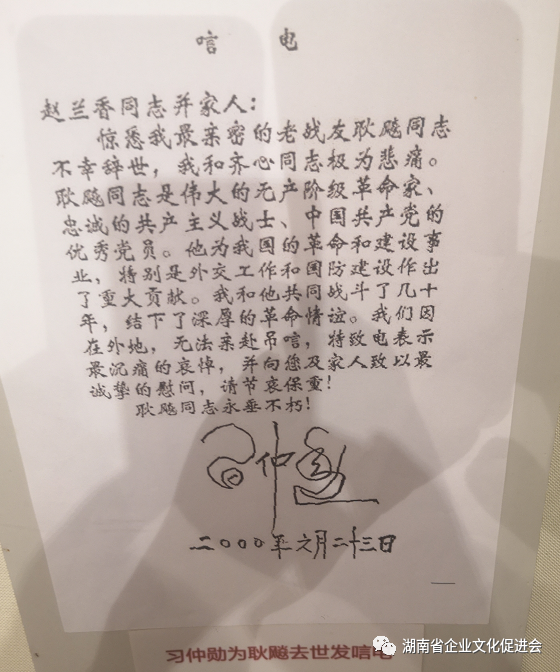 唁 电
赵兰香同志并家人：
惊悉我最亲密的老战友耿飚同志
不幸辞世，我和齐心同志极为悲痛。
耿飚同志是伟大的无产阶级革命家、
忠诚的共产主义战士、中国共产党的
优秀党员。他为我国的革命和建设事
业，特别是外交工作和国防建设作出
了重大贡献。我和他共同战斗了几十
年，结下了深厚的革命情谊。我们因
在外地，无法亲赴吊唁，特致电表示
最沉痛的哀悼，并向您及家人致以最
诚挚的慰问，请节哀保重！
耿飚同志永垂不朽！
习仲勋
二〇〇〇年六月二十三日
习仲勋为耿飚去世发唁电
湖南省企业文化促进会